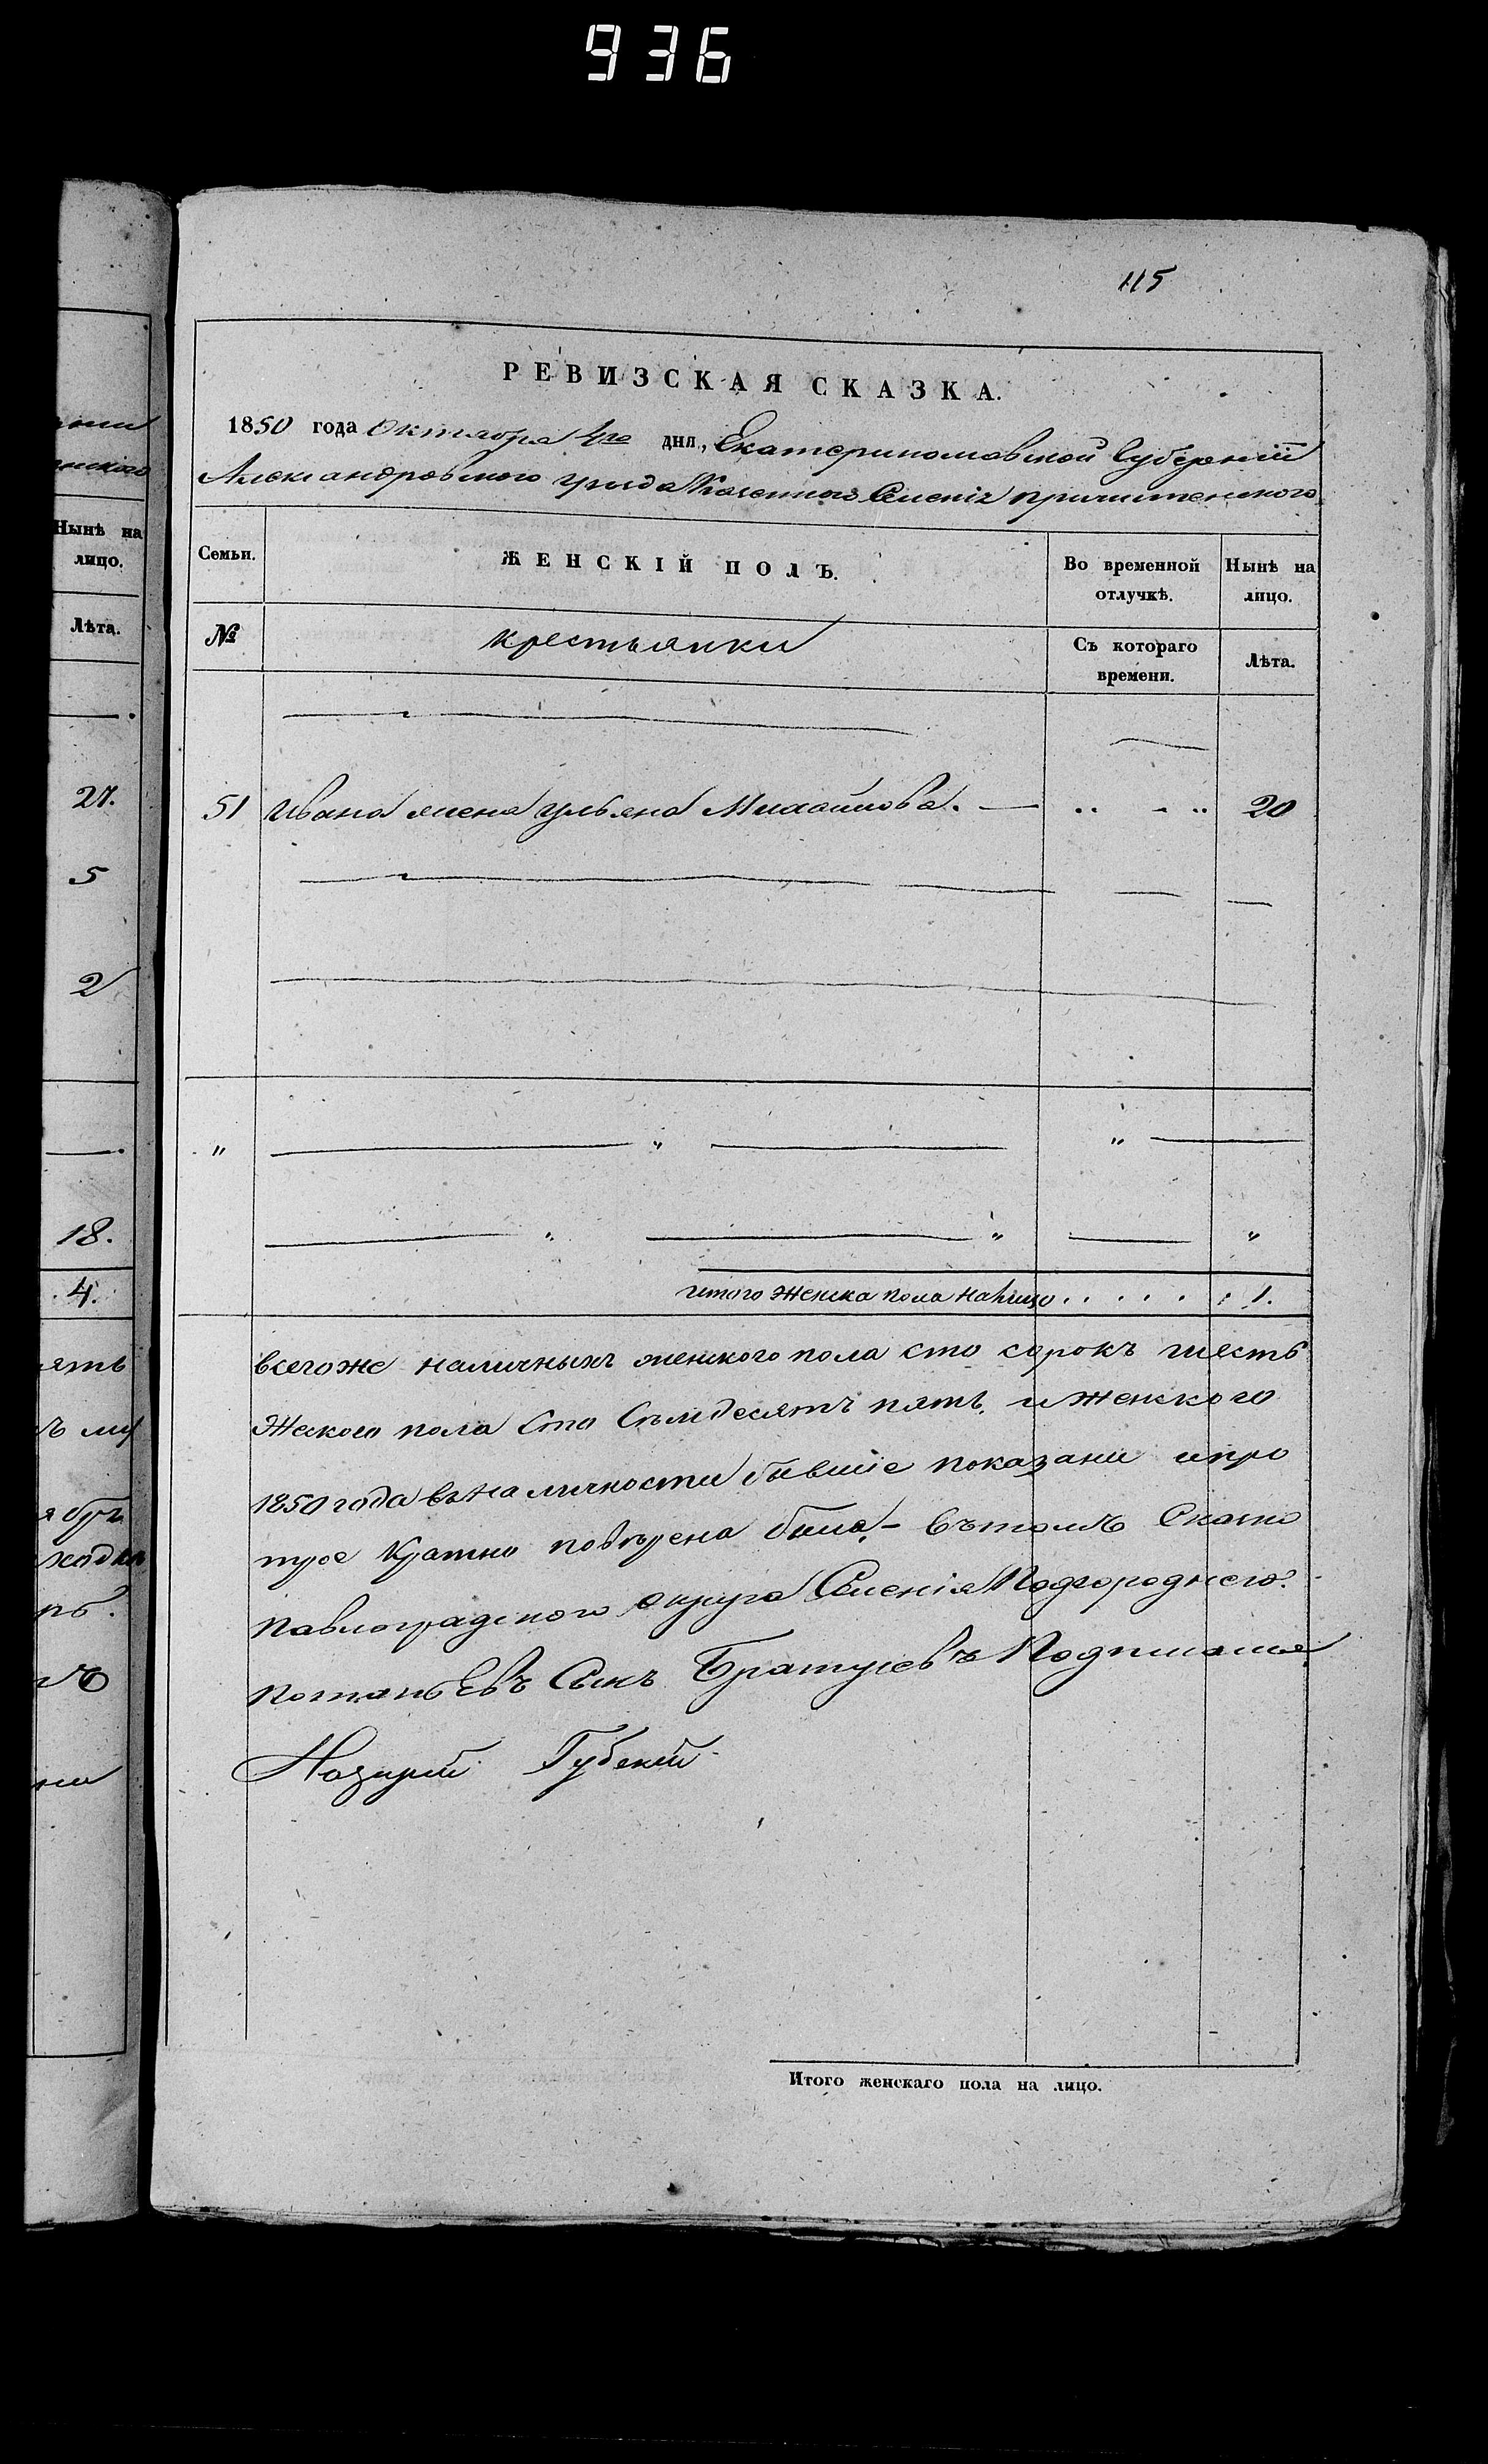 936
115
РЕВИЗСКАЯ СКАЗКА.
1850 года Октября 4го дня, Екатеринославской Губернiи
Александровского уезда Казенного Селенiя
Семьи.
ЖЕНСКIЙ ПОЛЪ.
Во временной отлучкѣ.
Нынѣ на лицо.
№
крестьянки
Съ котораго времени.
Лѣта.
51 Ивана жена Ульяна Михайлова. — 20
итого женска пола налицо . . . . . 1.
всего же наличныхъ женского пола сто сорокъ шесть
Жеского пола Сто Семдесятъ пять и женского
1850 года въ наличности бывшiе показани и про
трое Кратно повѣрена била - Въ томъ Скаско
Павлоградского округа Селенiя Подгороднего.
Потапьевъ Сынъ Братусевъ
Назарий Губский
Итого женскаго пола на лицо.
Нынѣ на
лицо.
Лѣта.
27.
5
2
18.
4.